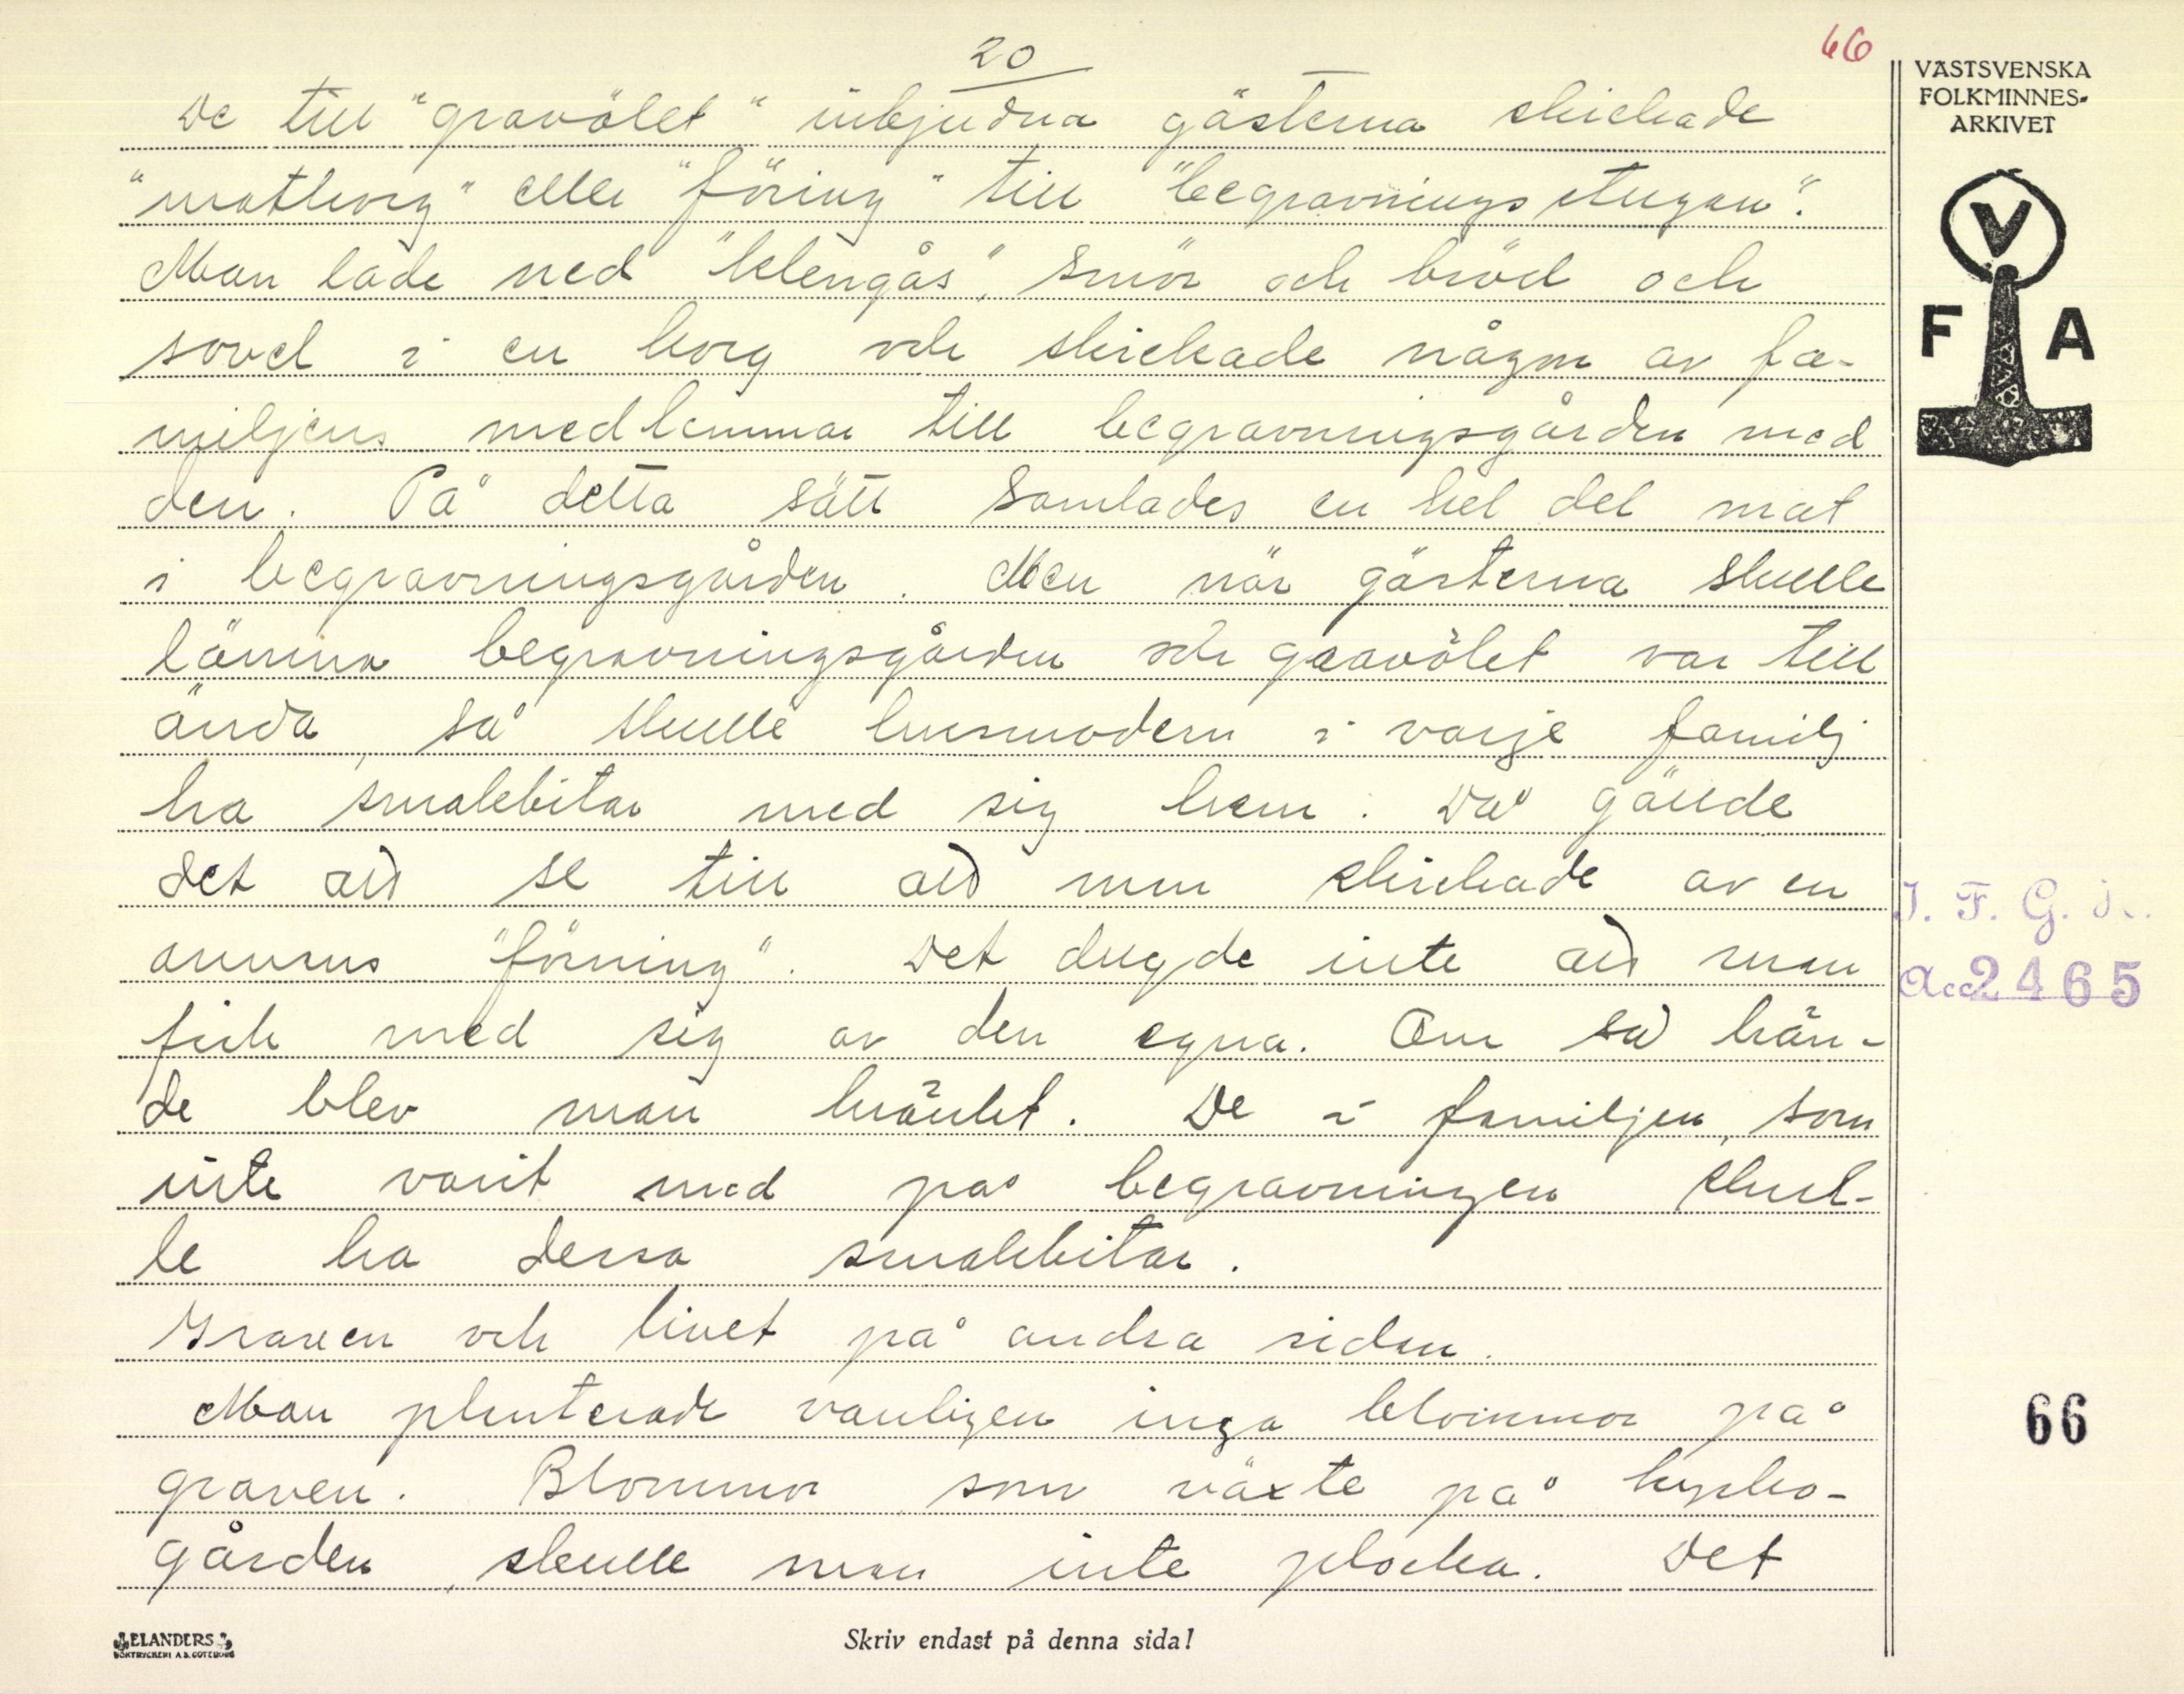 20
66
De till "gravölet" inbjudna gästerna skickade
"matkorg" eller "föring" till "begravningsstugan".
Man lade ned "klengås", smör och bröd och
sovel i en korg och skickade någon av fa-
miljens medlemmar till begravningsgården med
den. På detta sätt samlades en hel del mat
i begravningsgården. Men när gästerna skulle
lämna begravningsgården och gravölet var till
ända, så skulle husmodern i varje familj
ha smakbitar med sig hem. Då gällde
det att se till att man skickade av en
annans "förning". Det dugde inte att man
fick med sig av den egna. Om så hän-
de blev man hånlet. De i familjen, som
inte varit med på begravningen skul-
le ha dessa smakbitar.
Graven och livet på andra sidan.
Man planterade vanligen inga blommor på
graven. Blommor som växte på kyrko-
gården, skulle man inte plocka. Det
VÄSTSVENSKA
FOLKMINNES-
ARKIVET
V
F A
I. F. G. H.
Acc. 2465
66
ELANDERS
BOKTRYCKERI A.B. GÖTEBORG
Skriv endast på denna sida!